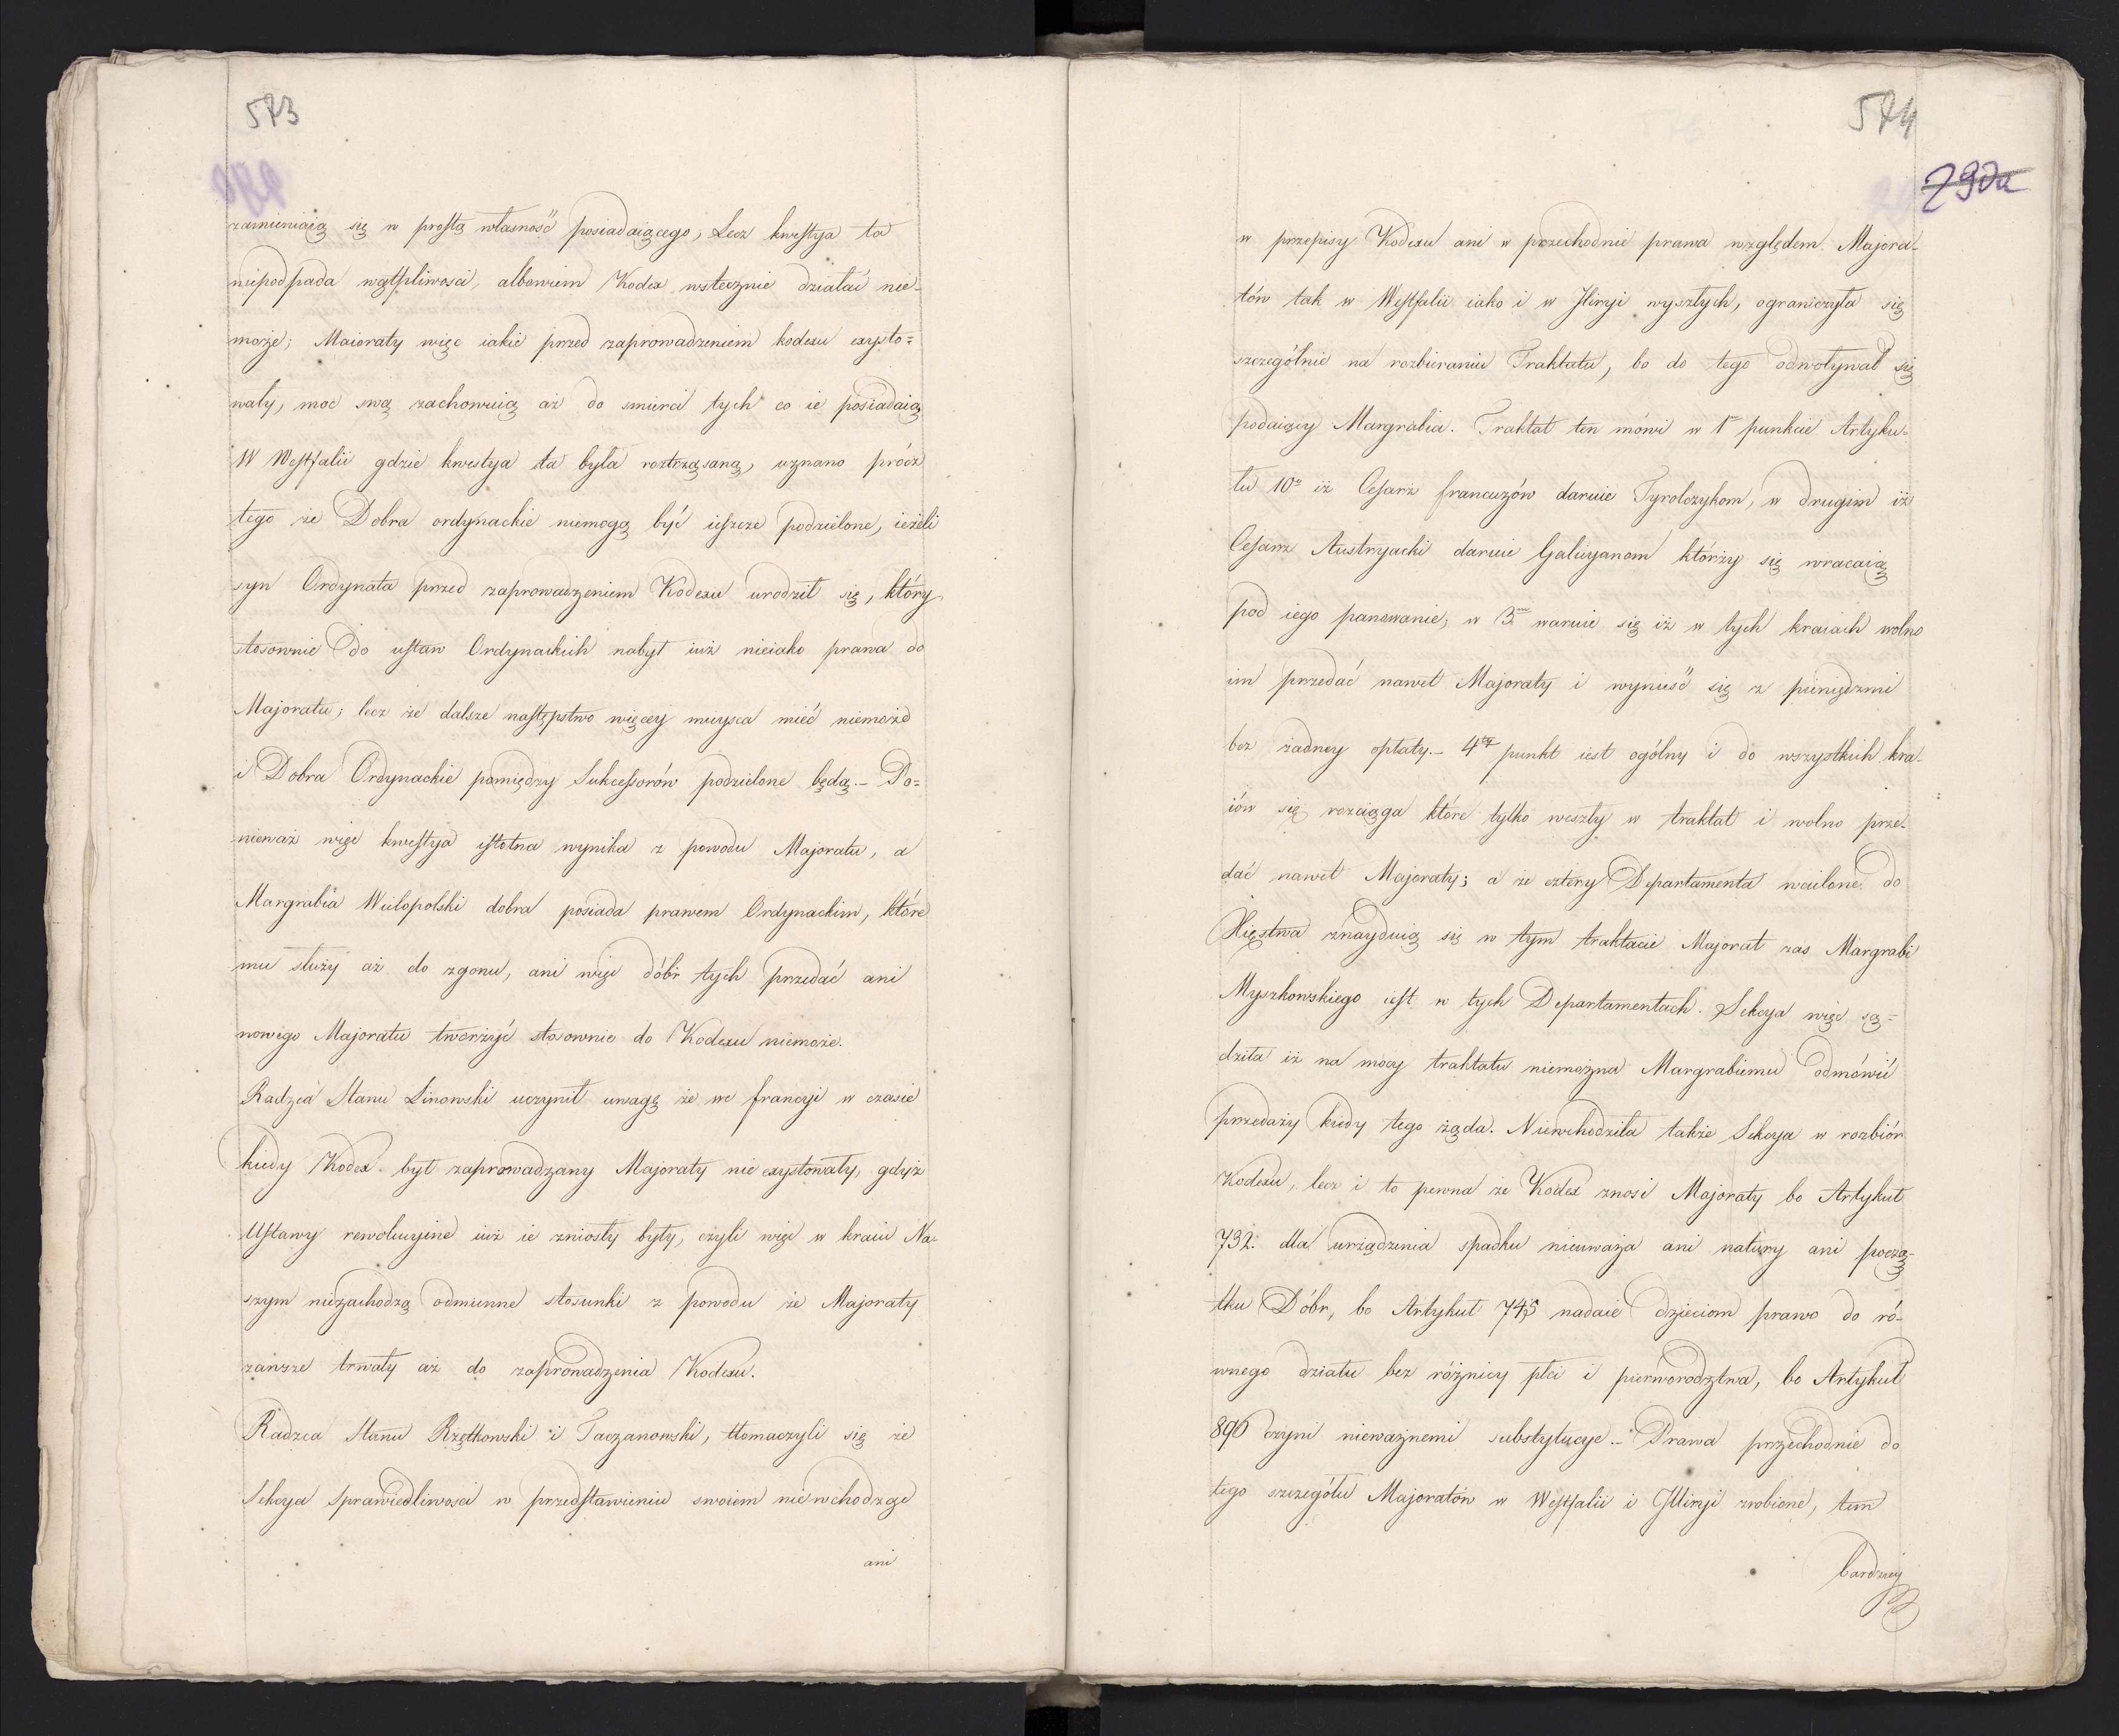 573
zamieniaią się w prostą własność posiadaiącego, Lecz kwestya ta
niepodpada wątpliwosci, albowiem Kodex wstecznie działać nie-
może; Maioraty więc iakie przed zaprowadzeniem kodexu exysto=
wały, moc swą zachowuią aż do smierci tych co ie posiadaią
W Westfalii gdzie kwestya ta była roztrząsaną, uznano prócz
tego że Dobra ordynackie niemogą być ieszcze podzielone, ieżeli
syn Ordynata przed zaprowadzeniem Kodexu urodził się, który
stosownie do ustaw Ordynackich nabył iuż nieiako prawa do
Majoratu; lecz że dalsze następstwo więcey mieysca mieć niemoże
i Dobra Ordynackie pomiędzy Sukcessorów podzielone będą.- Po=
nieważ więc kwestya istotna wynika z powodu Majoratu, a
Margrabia Wielopolski dobra posiada prawem Ordynackim, które
mu służy aż do zgonu, ani więc dóbr tych przedać ani
nowego Majoratu tworzyć stosownie do Kodexu niemoże.
Radzca Stanu Linowski uczynił uwagę że we francyi w czasie
kiedy Kodex był zaprowadzany Majoraty nie exystowały, gdyż
Ustawy rewolucyine iuż ie zniosły były, czyli więc w kraiu Na-
szym niezachodzą odmienne stosunki z powodu że Majoraty
zawsze trwały aż do zaprowadzenia Kodexu.
Radzca Stanu Rzętkowski i Taczanowski, tłomaczyli się że
Sekcya Sprawiedliwosci w przedstawieniu swoiem niewchodząc
ani
574
w przepisy Kodexu ani w przechodnie prawa względem Majora-
tów tak w Westfalii iako i w Iliryi wyszłych, ograniczyła się
szczególnie na rozbieraniu Traktatu, bo do tego odwoływał się
podaiący Margrabia. Traktat ten mówi w 1m punkcie Artyku=
łu 10o iż Cesarz francuzów daruie Tyrolczykom, w drugim iż
Cesarz Austryacki daruie Galicyanom którzy się wracaią
pod iego panowanie; w 3m waruie się iż w tych kraiach wolno
im przedać nawet Majoraty i wynieść się z pieniędzmi
bez żadney opłaty.- 4ty punkt iest ogólny i do wszystkich kra-
iów się rozciąga które tylko weszły w traktat i wolno prze-
dać nawet Majoraty; a że cztery Departamenta wcielone do
Xięstwa znayduią się w tym traktacie Majorat zas Margrabi
Myszkowskiego iest w tych Departamentach. Sekcya więc są=
dziła iż na mocy traktatu niemożna Margrabiemu odmówić
przedaży kiedy tego żąda. Niewchodziła także Sekcya w rozbiór
Kodexu, lecz i to pewna że Kodex znosi Majoraty bo Artykuł
732. dla urządzenia spadku nieuważa ani natury ani począ-
tku Dóbr, bo Artykuł 745 nadaie dzieciom prawo do ró-
wnego działu bez różnicy płci i pierworodztwa, bo Artykuł
896 czyni nieważnemi substytucye.- Prawa przechodnie do
tego szczegółu Majoratów w Westfalii i Illiryi zrobione, tem
bardziey